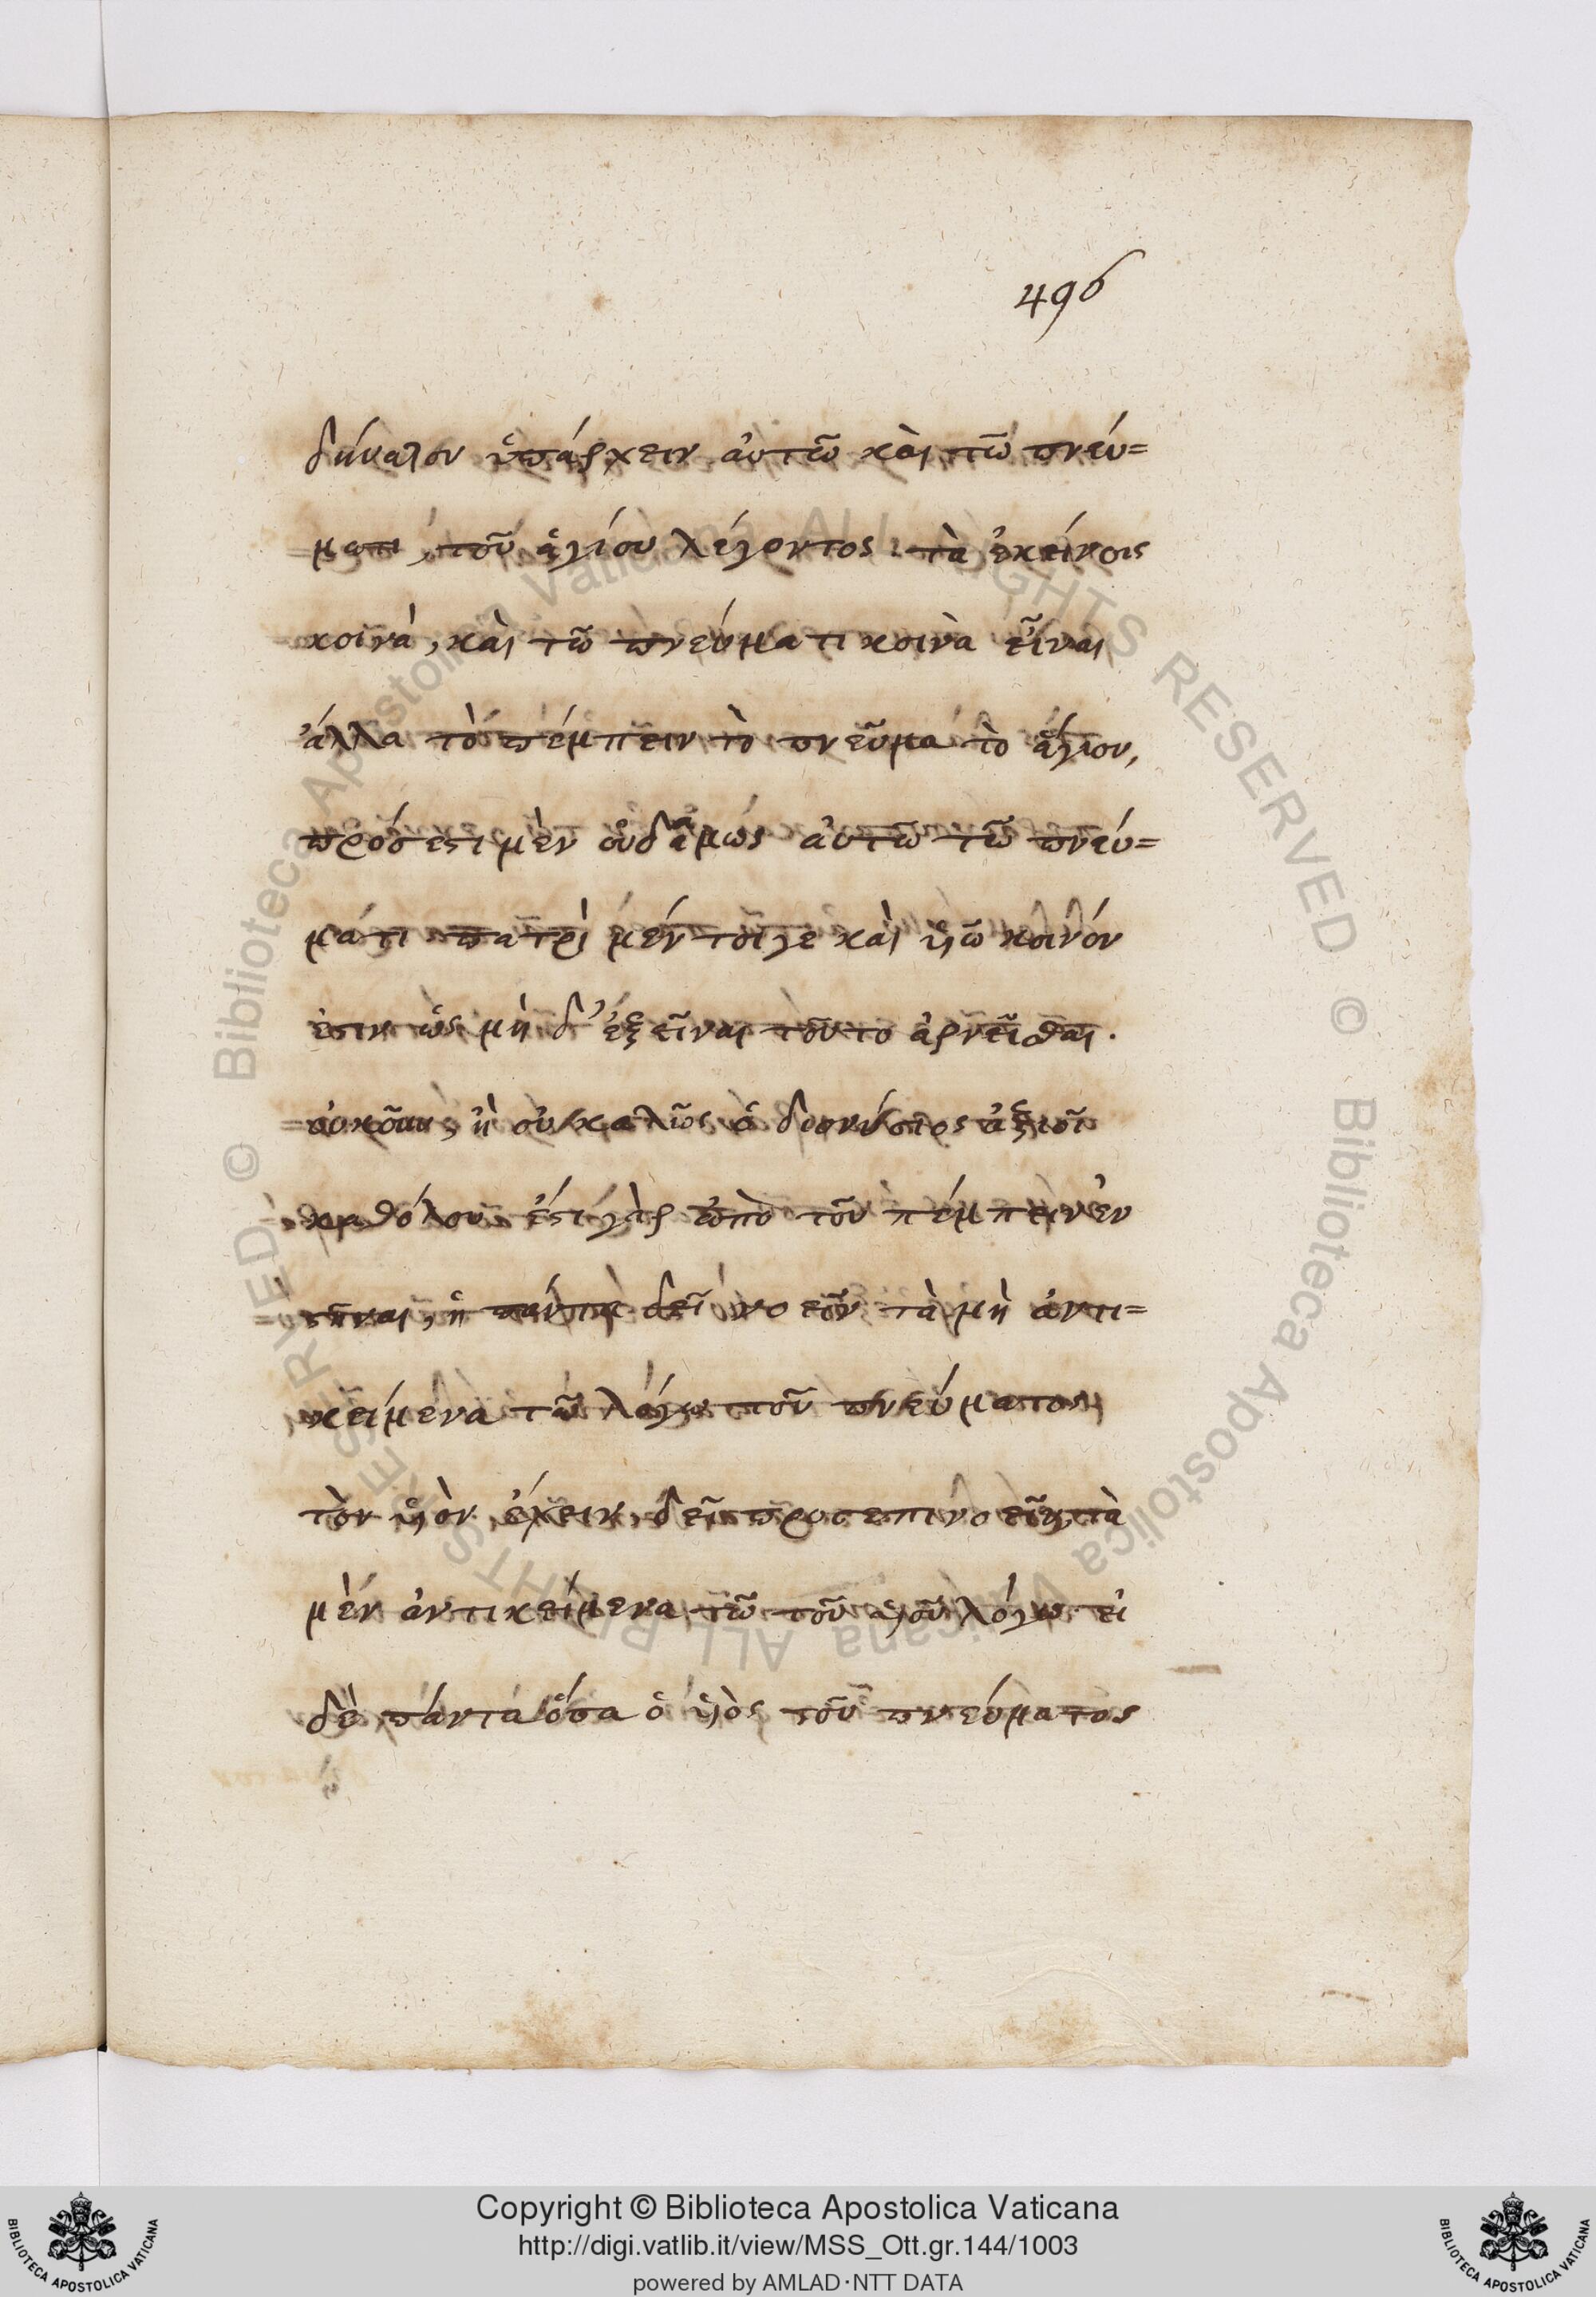 496
δύναλον ὑπάρχειν αὐτῶ καὶ τῶ πνεύ=
ματι, τοῦ ἁγίου λέγοντος. τὰ ἐκείνοις
κοινά, καὶ τῶ πνεύματι κοινὰ εἶναι
ἀλλα τὸ πέμπειν τὸ πνεῦμα τὸ ἅγιον,
πρόσεστι μὲν οὐδαμώς αὐτῶ τῶ πνεύ=
ματι πατρὶ μέν τοίγε καὶ ὑιῶ κοινόν
ἐστιν ὡς μὴ δ' ἐξεῖναι τοῦτο ἀρνεῖσθαι.
ἢ οὐ καλῶς ὁ διονύσιος ἀξιοῖ
καθόλου ἐστι γὰρ ἀπὸ τοῦ πέμπειν ἐν
ἢ δεῖ νοεῖν τὰ μὴ ἀντι=
κείμενα τῶ λόγω τοῦ πνεύματος
τὸν ὑιὸν ἔχειν, δεῖ προσεπινοεῖν τὰ
μὲν ἀντικείμενα τῶ τοῦ ὑιοῦ λόγω εἰ
δὲ πάντα ὅσα ὁ ὑιὸς τοῦ πνεύματος
Copyright © Biblioteca Apostolica Vaticana
http://digi.vatlib.it/view/MSS_Ott.gr.144/1003
powered by AMLAD·NTT DATA
BIBLIOTECA APOSTOLICA VATICANA
BIBLIOTECA APOSTOLICA VATICANA
© Biblioteca Apostolica Vaticana ALL RIGHTS RESERVED
© Biblioteca Apostolica Vaticana ALL RIGHTS RESERVED